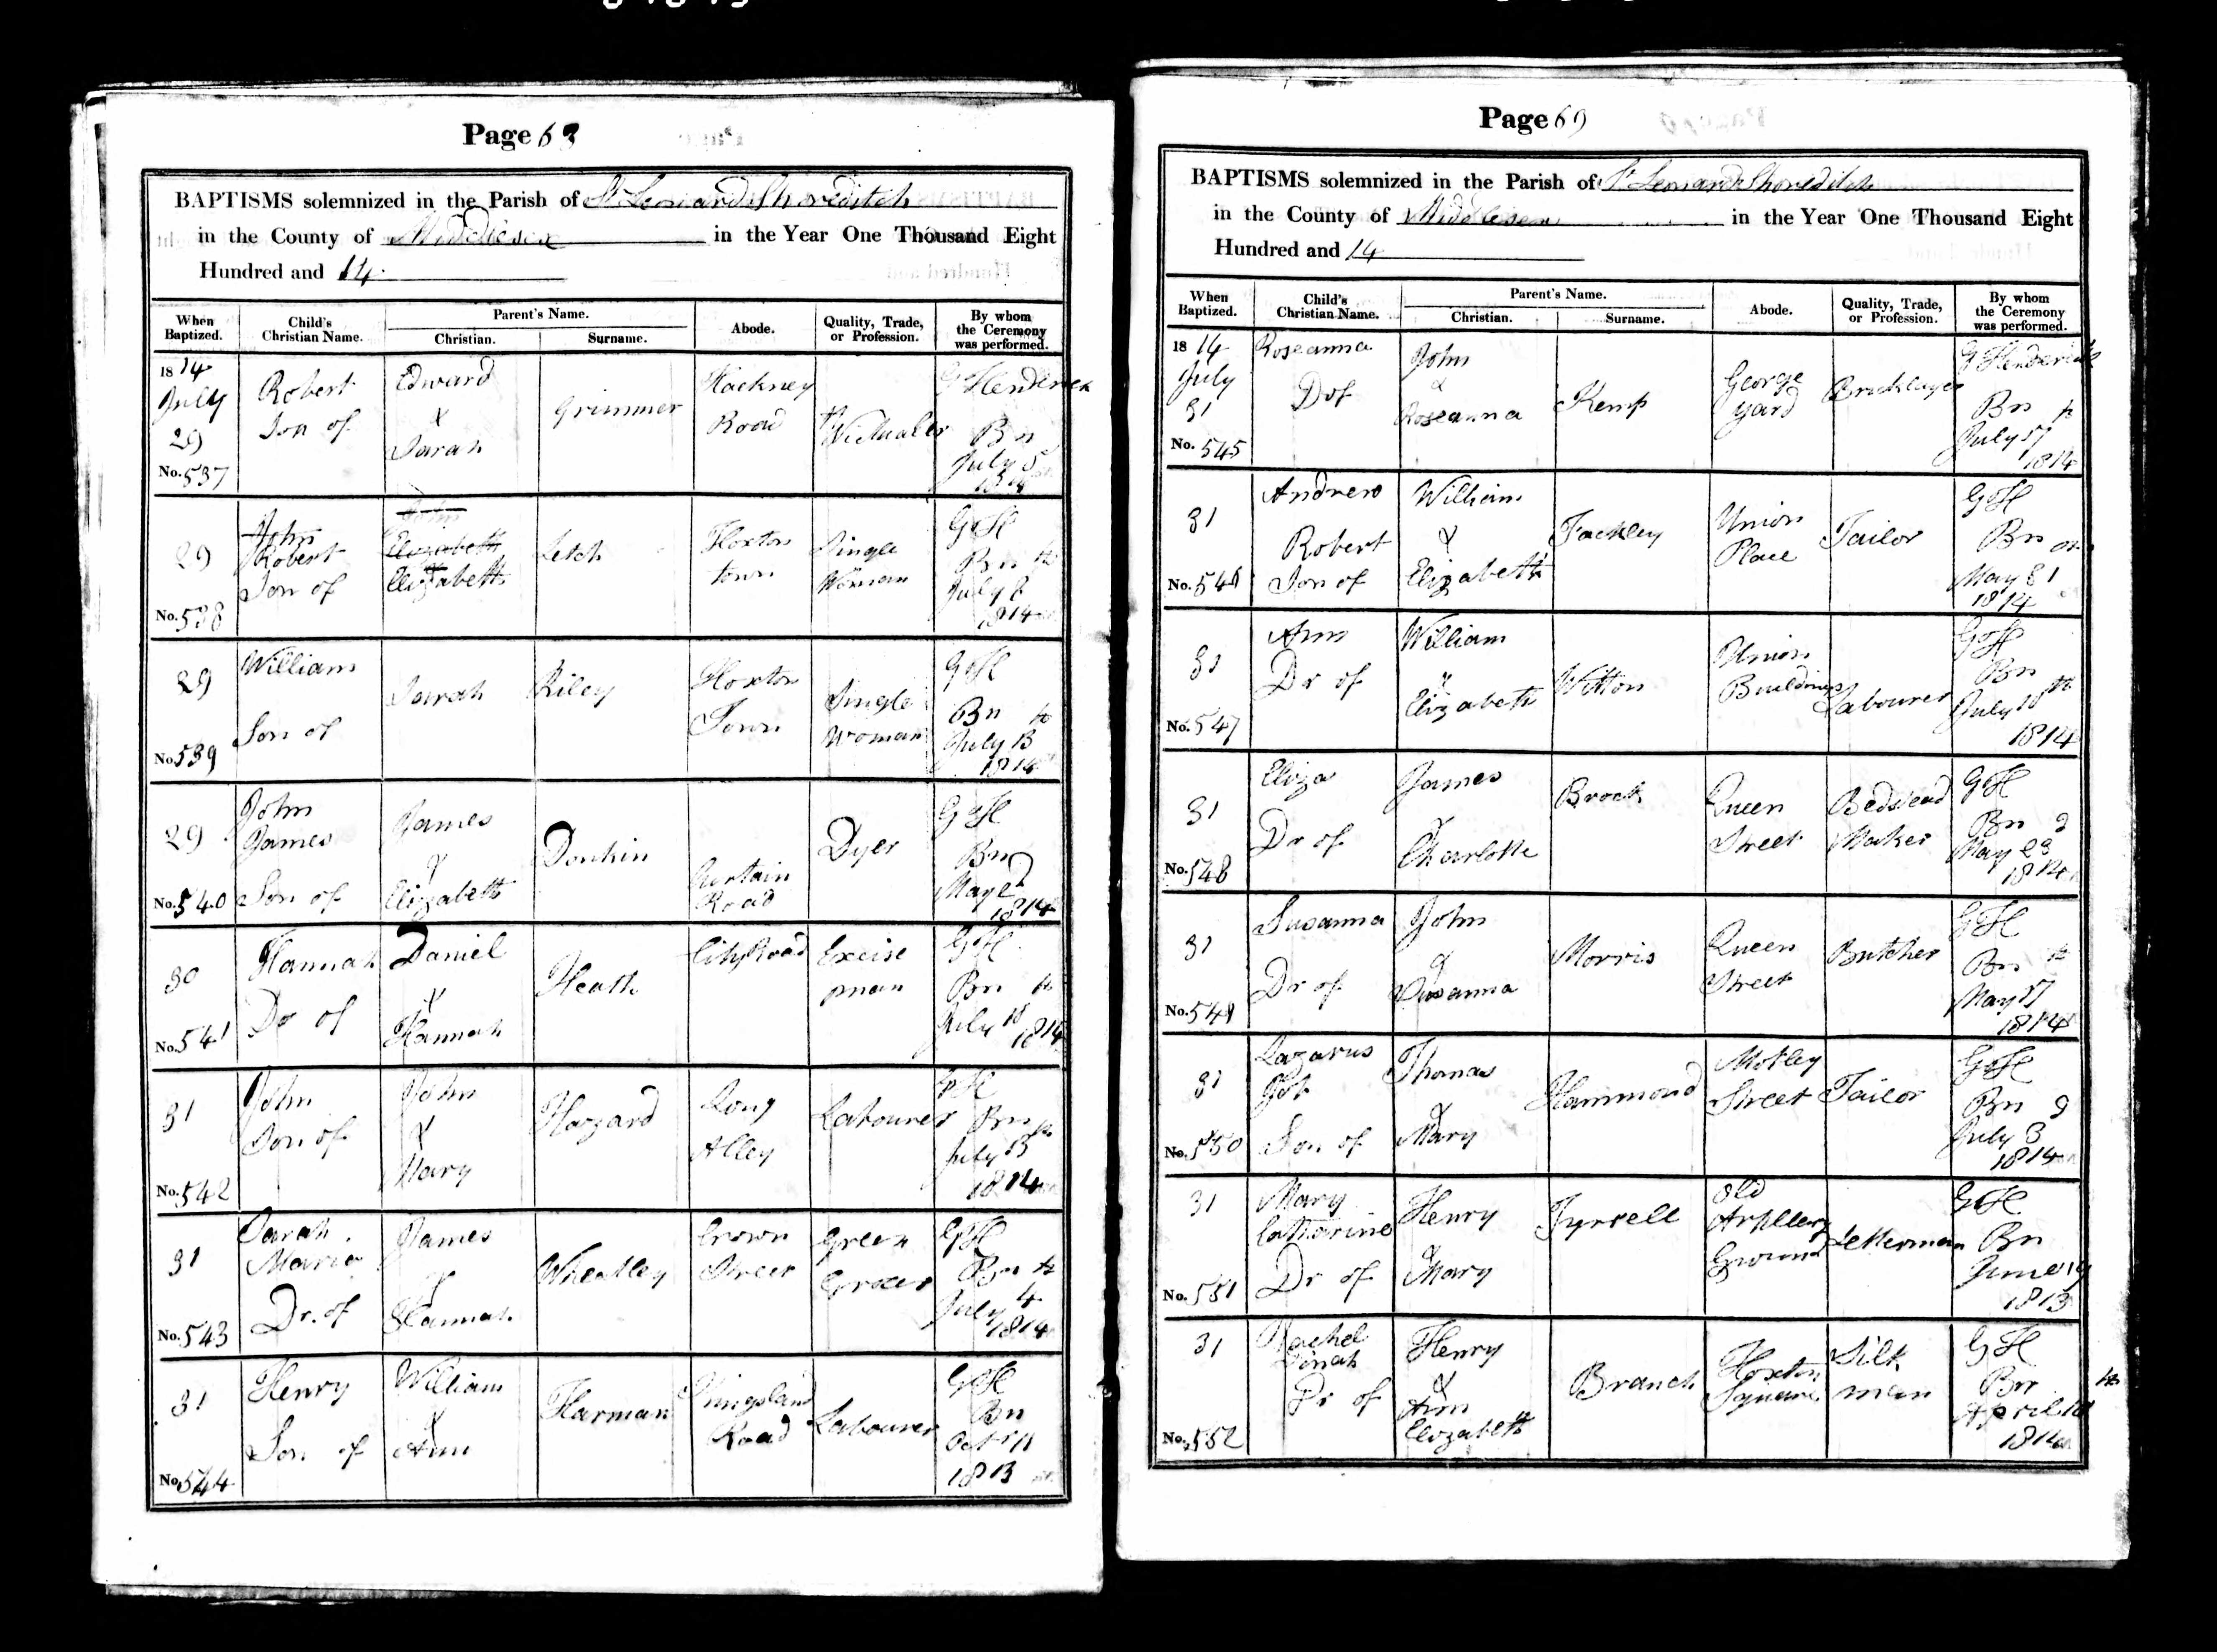 Page 63
BAPTISMS solemnized in the Parish of St Leonard Shoreditch
in the County of Middlesex in the Year One Thousand Eight
Hundred and 14
When Baptized. Child's Christian Name. Parent's Name. Christian. Surname. Abode. Quality, Trade, or Profession. By whom the Ceremony was performed.
1814 July 29 No. 537 Robert Son of Edward & Sarah Grimmer Hackney Road Victualer Bn July 5 1814
29 No. 538 John Robert Son of Elizabeth Letch Hoxton town Single Woman GH Bn July 8 1814
29 No. 539 William Son of Sarah Riley Hoxton Town Single Woman GH Bn July 13 1814
29 No. 540 John James Son of James & Elizabeth Donkin Curtain Road Dyer GH Bn May 2 1814
30 No. 541 Hannah Dr of Daniel & Hannah Heath City Road Excise man GH Bn July 18 1814
31 No. 542 John Son of John & Mary Hazard Long Alley Labourer GH Bn July 13 1814
31 No. 543 Sarah Maria Dr. of James & Hannah Wheatley Crown Street Green Grocer GH Bn July 4 1814
31 No. 544 Henry Son of William & Ann Harman Kingsland Road Labourer GH Bn Oct 11 1813
Page 69
BAPTISMS solemnized in the Parish of St Leonard Shoreditch
in the County of Middlesex in the Year One Thousand Eight
Hundred and 14
When Baptized. Child's Christian Name. Parent's Name. Christian. Surname. Abode. Quality, Trade, or Profession. By whom the Ceremony was performed.
1814 July 31 No. 545 Roseanna D of John & Roseanna Kemp George yard Bricklayer Bn July 17 1814
31 No. 546 Andrew Robert Son of William & Elizabeth Tackley Union Place Tailor GH Bn May 31 1814
31 No. 547 Ann Dr of William & Elizabeth Witton Union Buildings Labourer GH Bn July 10th 1814
31 No. 548 Eliza Dr of James & Charlotte Brock Queen Street Bedstead Maker GH Bn May 23 1814
31 No. 549 Susanna Dr of John & Susanna Morris Queen Street Butcher GH Bn May 17 1814
31 No. 550 Lazarus Job Son of Thomas & Mary Hammond Motley Street Tailor GH Bn July 3 1814
31 No. 551 Mary Catharine Dr of Henry & Mary Tyrrell Old Artillery Ground Letterman GH Bn June 19 1813
31 No. 552 Rachel Dinah Dr of Henry & Ann Elizabeth Branch Hoxton Square Silk man GH Bn April 18 1814